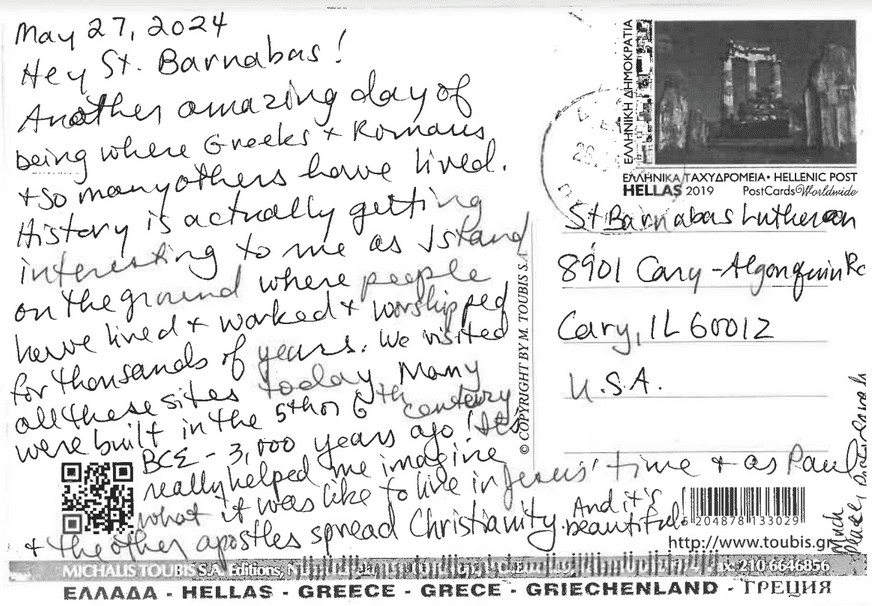 May 27, 2024
Hey St. Barnabas!
Another amazing day of
being where Greeks + Romans
+ so many others have lived.
History is actually getting
interesting to me as I stand
on the ground where people
have lived + worked + worshipped
for thousands of years. We visited
all these sites today. Many
were built in the 5th or 6th century
BCE - 3,000 years ago! It's
really helped me imagine
what it was like to live in Jesus' time + as Paul
+ the other apostles spread Christianity. And it's
beautiful!
Much
ΕΛΛΗΝΙΚΗ ΔΗΜΟΚΡΑΤΙΑ
ΕΛΛΗΝΙΚΑ ΤΑΧΥΔΡΟΜΕΙΑ • HELLENIC POST
HELLAS 2019 PostCards Worldwide
St Barnabas Lutheran
8901 Cary-Algonquin Rd
Cary, IL 60012
U.S.A.
© COPYRIGHT BY M. TOUBIS S.A.
204878 133029
http://www.toubis.gr
MICHALIS TOUBIS S.A. Editions, 210 6646856
ΕΛΛΑΔΑ - HELLAS - GREECE - GRECE - GRIECHENLAND - ГРЕЦИЯ